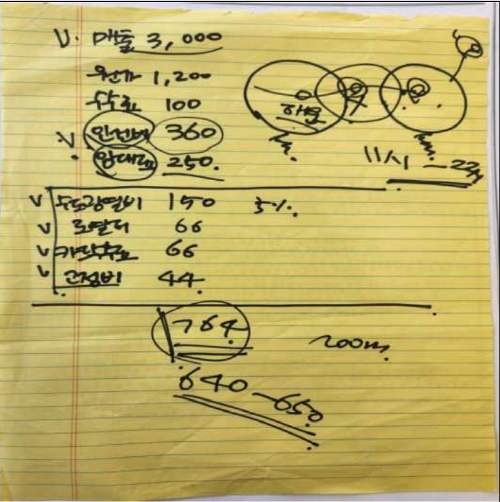 매출 3,000
원가 1,200
수수료 100
인건비 360
임대료 250
수도광열비 150 5%
로얄티 66
카드수수료 66
고정비 44
764
640 - 650
11시 - 22시